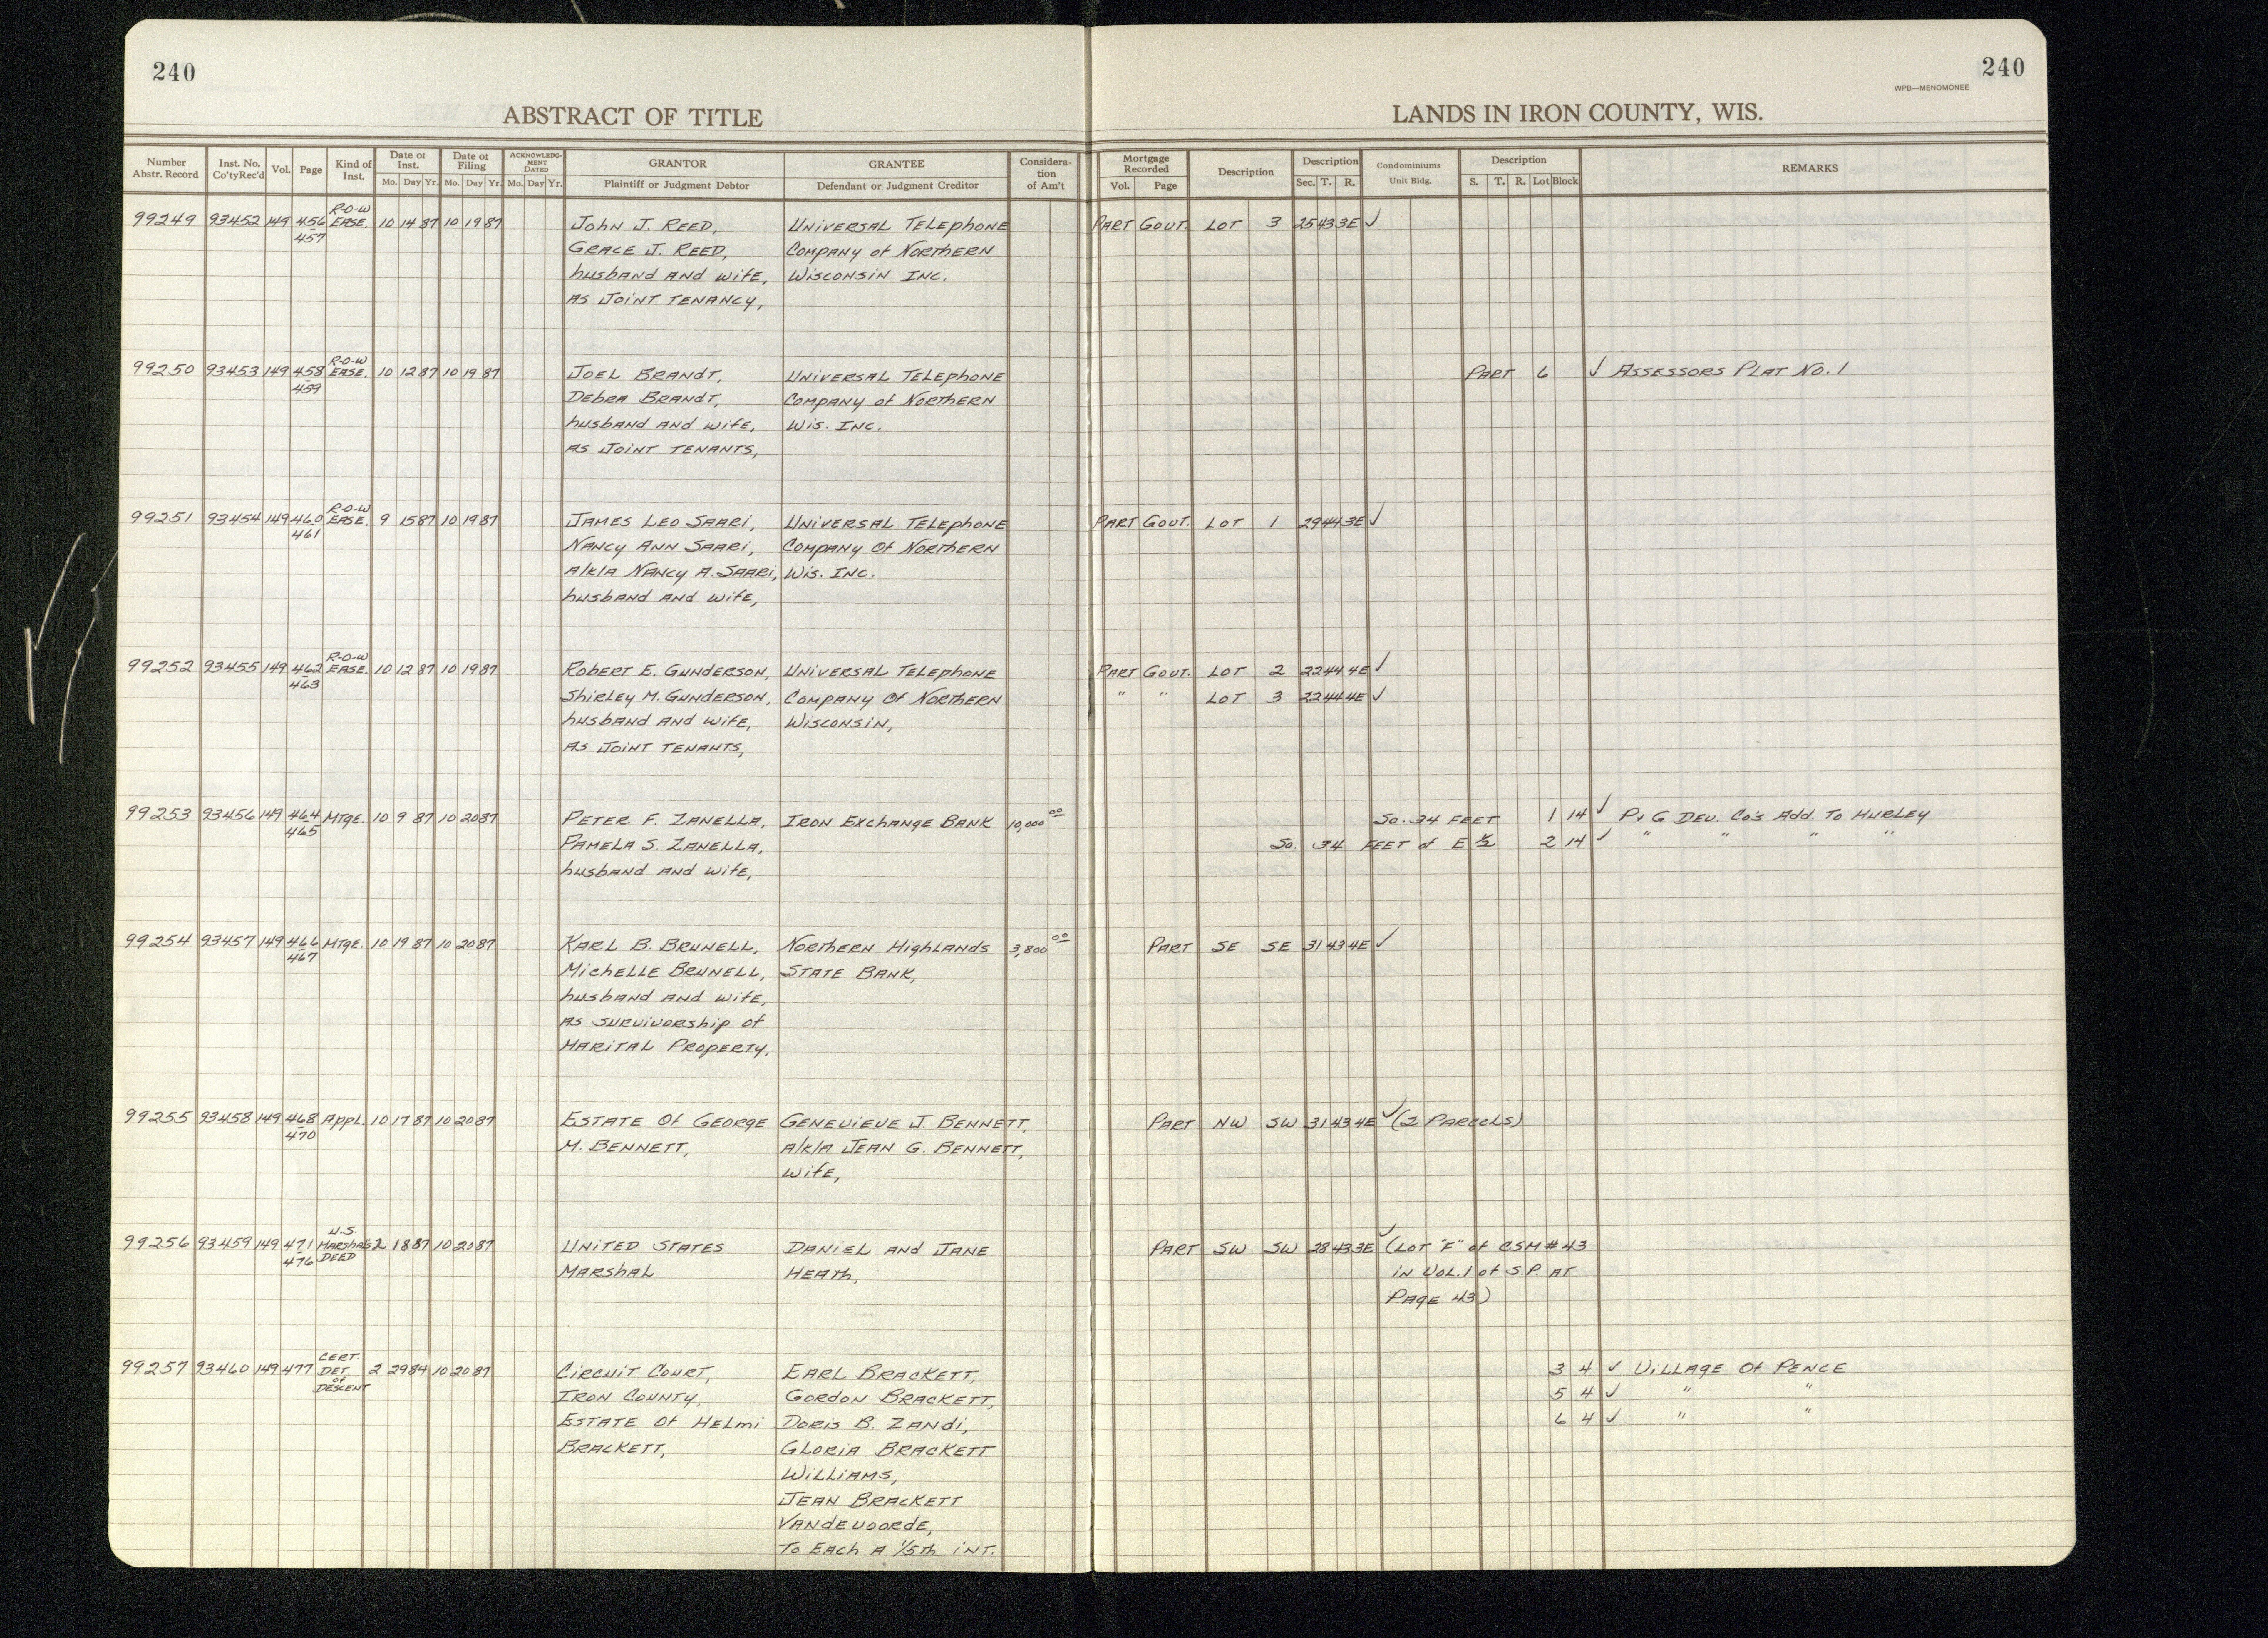 240
240
WPB—MENOMONEE
ABSTRACT OF TITLE
LANDS IN IRON COUNTY, WIS.
Number Abstr. Record | Inst. No. Co'tyRec'd | Vol. | Page | Kind of Inst. | Date of Inst. Mo. Day Yr. | Date of Filing Mo. Day Yr. | ACKNOWLEDGMENT DATED Mo. Day Yr. | GRANTOR Plaintiff or Judgment Debtor | GRANTEE Defendant or Judgment Creditor | Consideration of Am't | Mortgage Recorded Vol. Page | Description | Description Sec. T. R. | Condominiums Unit Bldg. | Description S. T. R. Lot Block | REMARKS
R-O-W
99249 93452 149 456 EASE. 10 14 87 10 19 87 John J. Reed, Universal Telephone PART GOVT. LOT 3 25 43 3E ✓
457 Grace J. Reed, Company of Northern
husband and wife, Wisconsin Inc.
as Joint Tenancy,
R-O-W
99250 93453 149 458 EASE. 10 12 87 10 19 87 Joel Brandt, Universal Telephone PART 6 ✓ Assessors Plat No. 1
459 Debra Brandt, Company of Northern
husband and wife, Wis. Inc.
as Joint Tenants,
R-O-W
99251 93454 149 460 EASE. 9 15 87 10 19 87 James Leo Saari, Universal Telephone PART GOVT. LOT 1 29 44 3E ✓
461 Nancy Ann Saari, Company of Northern
a/k/a Nancy A. Saari, Wis. Inc.
husband and wife,
R-O-W
99252 93455 149 462 EASE. 10 12 87 10 19 87 Robert E. Gunderson, Universal Telephone PART GOVT. LOT 2 22 44 4E ✓
463 Shirley M. Gunderson, Company of Northern " " LOT 3 22 44 4E ✓
husband and wife, Wisconsin,
as Joint Tenants,
99253 93456 149 464 Mtge. 10 9 87 10 20 87 Peter F. Zanella, Iron Exchange Bank 10,000 00 So. 34 FEET 1 14 ✓ P & G Dev. Co's Add. To Hurley
465 Pamela S. Zanella, So. 34 FEET of E ½ 2 14 ✓ " " " "
husband and wife,
99254 93457 149 466 Mtge. 10 19 87 10 20 87 Karl B. Brunell, Northern Highlands 3,800 00 PART SE SE 31 43 4E ✓
467 Michelle Brunell, State Bank,
husband and wife,
as survivorship of
Marital Property,
99255 93458 149 468 Appl. 10 17 87 10 20 87 Estate of George Genevieve J. Bennett, PART NW SW 31 43 4E ✓ (2 Parcels)
470 M. Bennett, a/k/a Jean G. Bennett,
wife,
U.S.
99256 93459 149 471 Marshals 2 18 87 10 20 87 United States Daniel and Jane PART SW SW 28 43 3E ✓ (Lot "F" of CSM # 43
476 DEED Marshal Heath, in Vol. 1 of S.P. at
Page 43)
CERT.
99257 93460 149 477 DET. 2 29 84 10 20 87 Circuit Court, Earl Brackett, 3 4 ✓ Village of Pence
of
DESCENT Iron County, Gordon Brackett, 5 4 ✓ " "
Estate of Helmi Doris B. Zandi, 6 4 ✓ " "
Brackett, Gloria Brackett
Williams,
Jean Brackett
Vandevoorde,
To Each a 1/5th int.